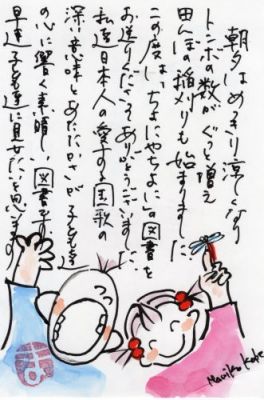 朝夕はめっきり涼しくなり
トンボの数がぐっと増え
田んぼの稲刈りも始まりました
この度は、ちよにやちよにの図書を
お送りくださってありがとうございました
私達日本人の愛する国歌の
深い意味とあたたかさが子ども達
の心に響く素晴しい図書です
早速子ども達に見せたいと思います
ま
Mariko Kato